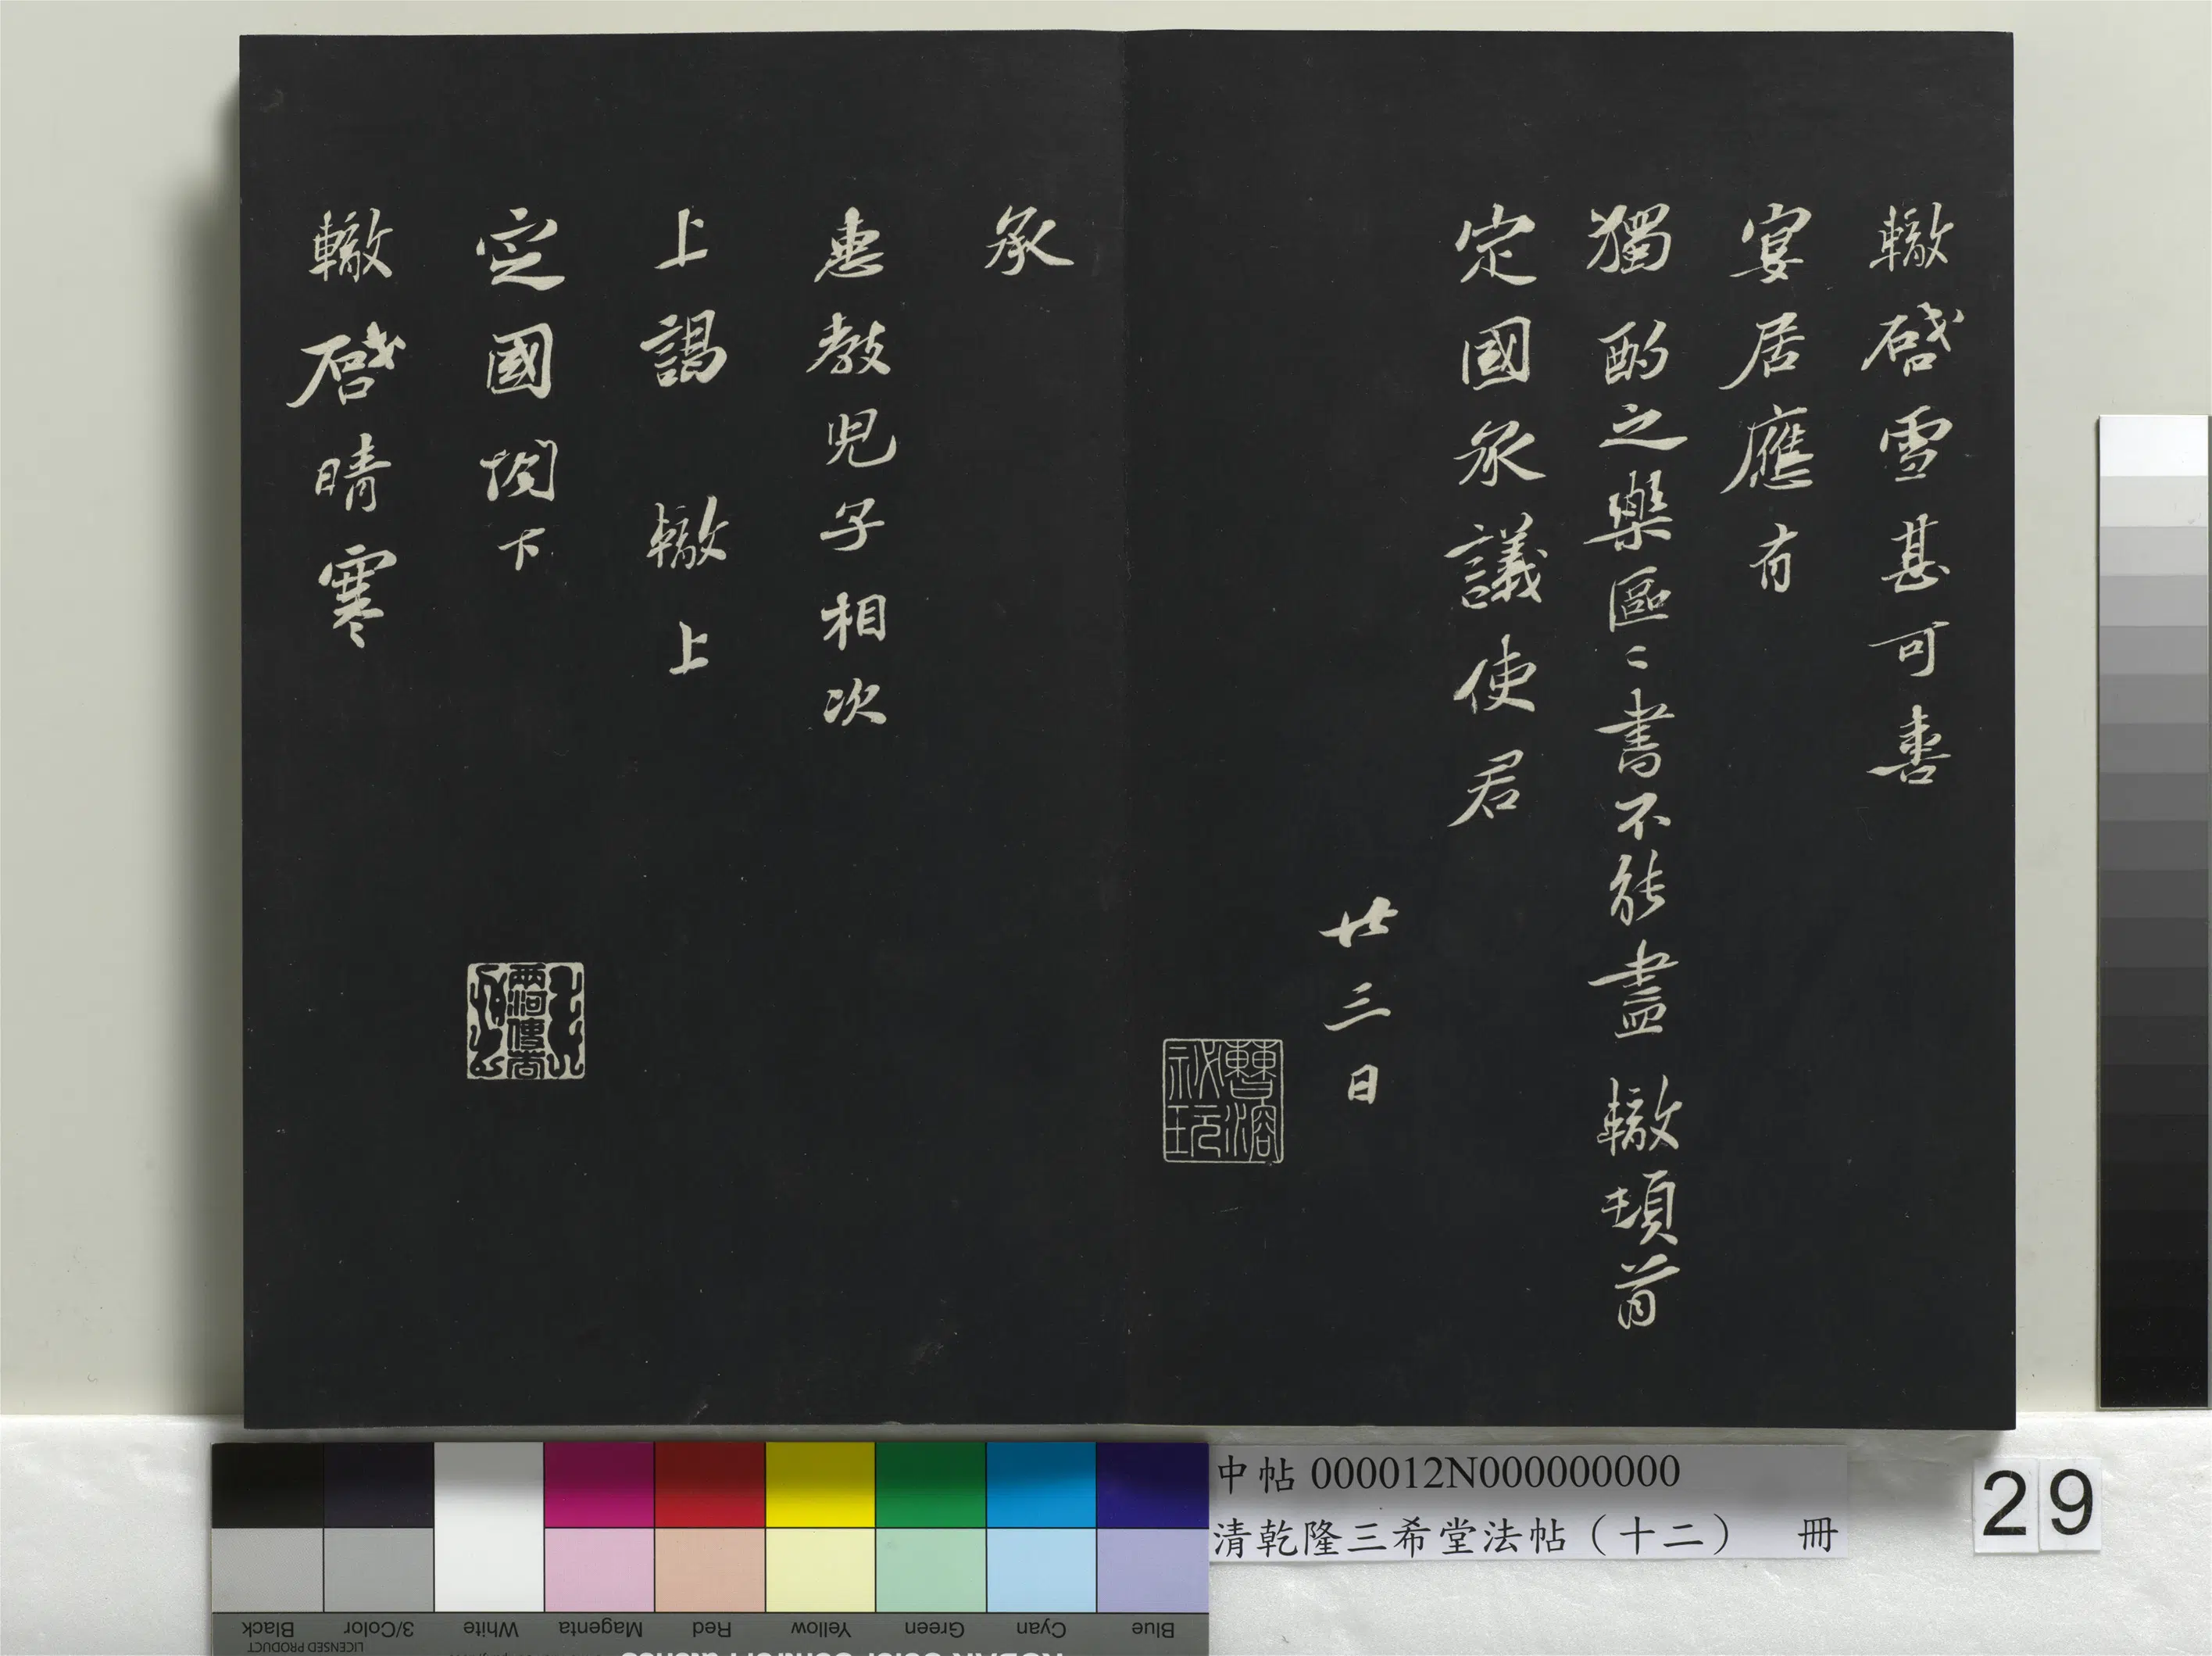 轍啓雪甚可喜
宴居應有
獨酌之樂區〻書不能盡 轍頓首
定國承議使君
廿三日
曹溶秘玩
承
惠教兒子相次
上謁 轍上
定國閣下
轍啓晴寒
中帖 000012N000000000
清乾隆三希堂法帖（十二） 冊
29
Black
3/Color
White
Magenta
Red
Yellow
Green
Cyan
Blue
LICENSED PRODUCT